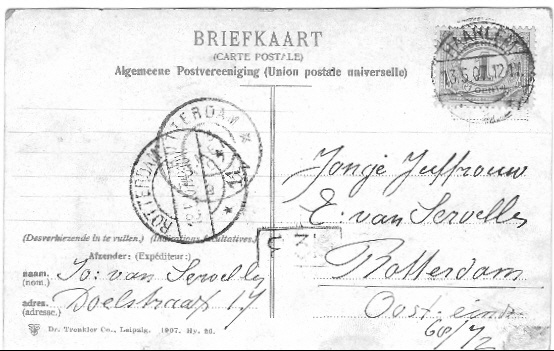 BRIEFKAART
(CARTE POSTALE)
Algemeene Postvereeniging (Union postale universelle)
HAARLEM
1
ROTTERDAM
(Desverkiezende in te vullen.) (Indications facultatives.)
Afzender: (Expéditeur:)
naam. Jo: van Servelle
(nom.)
adres. Doelstraat 17
(adresse.)
Dr. Trenkler Co., Leipzig. 1907. Hy. 26.
Jonge Juffrouw
E: van Servelle
Rotterdam
Oost-einde
68/72